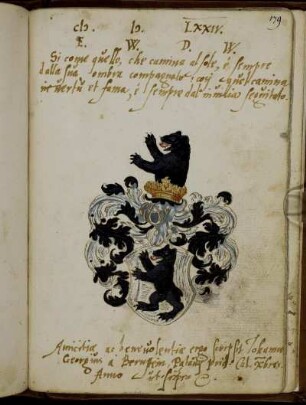 179
cIɔ. Iɔ. LXXIV.
E. W. D. W.
Si come quello, che camina al sole, è sempre
dalla sua ombra compagnato, cosi quel camina
in vertu et fama, è sempre dal invidia seguitato.
Amicitiæ ac benevolentiæ ergo scripsit Johannes
Georgius à Bernstein Patavij prid. Cal. Xbris
Anno ut supra